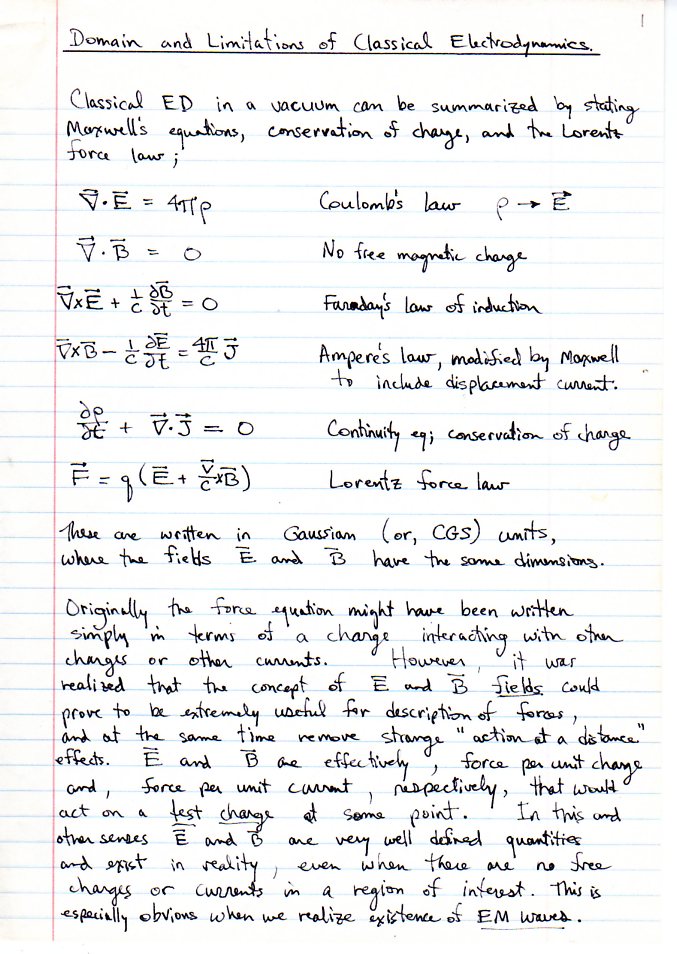 1
Domain and Limitations of Classical Electrodynamics.
Classical ED in a vacuum can be summarized by stating
Maxwell's equations, conservation of charge, and the Lorentz
force law;
∇⃗·E⃗ = 4πρ   Coulomb's law   ρ → E⃗
∇⃗·B⃗ = 0   No free magnetic charge
∇⃗×E⃗ + 1/c ∂B⃗/∂t = 0   Faraday's law of induction
∇⃗×B⃗ − 1/c ∂E⃗/∂t = 4π/c J⃗   Ampere's law, modified by Maxwell
to include displacement current.
∂ρ/∂t + ∇⃗·J⃗ = 0   Continuity eq; conservation of charge
F⃗ = q(E⃗ + v⃗/c×B⃗)   Lorentz force law
These are written in Gaussian (or, CGS) units,
where the fields E⃗ and B⃗ have the same dimensions.
Originally the force equation might have been written
simply in terms of a charge interacting with other
charges or other currents. However, it was
realized that the concept of E⃗ and B⃗ fields could
prove to be extremely useful for description of forces,
and at the same time remove strange "action at a distance"
effects. E⃗ and B⃗ are effectively, force per unit charge
and, force per unit current, respectively, that would
act on a test charge at some point. In this and
other senses E⃗ and B⃗ are very well defined quantities
and exist in reality, even when there are no free
charges or currents in a region of interest. This is
especially obvious when we realize existence of EM waves.